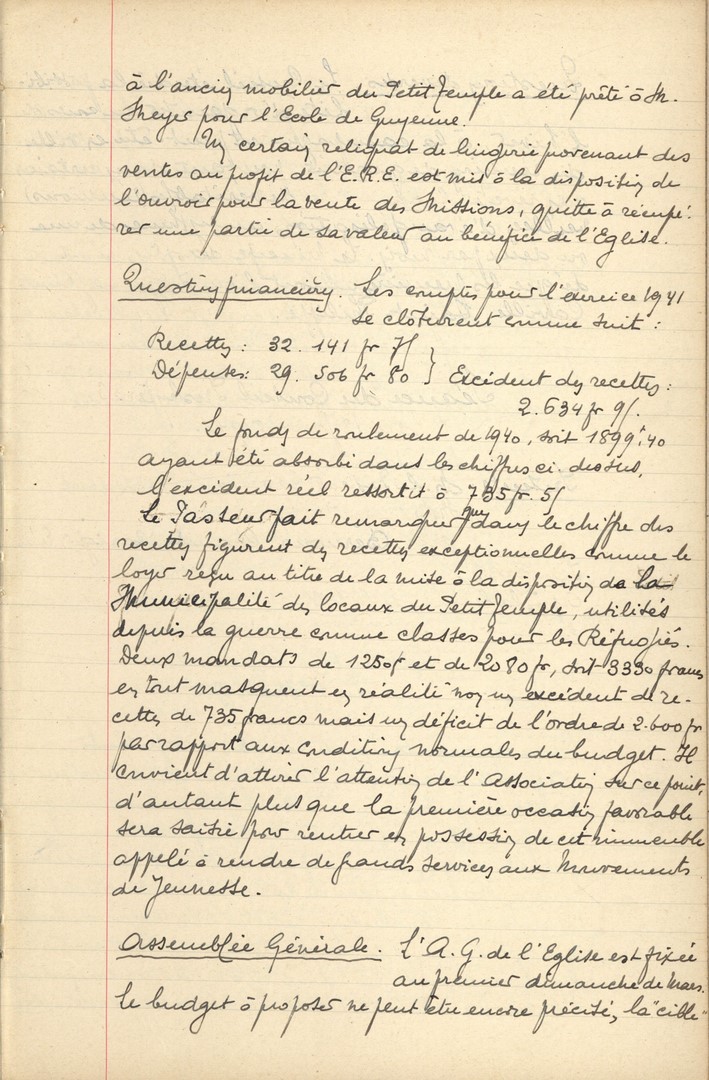 à l'ancien mobilier du Petit Temple a été prêté à M.
Meyer pour l'Ecole de Guyenne.
Un certain reliquat de lingerie provenant des
ventes au profit de l'E.R.E. est mis à la disposition de
l'ouvroir pour la vente des Missions, quitte à récupé-
rer une partie de sa valeur au bénéfice de l'Eglise.
Question financière. Les comptes pour l'exercice 1941
se clôturent comme suit :
Recettes : 32.141 fr 75
Dépenses : 29.506 fr 80 } Excédent des recettes :
2.634 fr 95.
Le fonds de roulement de 1940, soit 1899f,40
ayant été absorbé dans les chiffres ci-dessus,
l'excédent réel ressortit à 735 fr. 55
Le Pasteur fait remarquer que dans le chiffre des
recettes figurent des recettes exceptionnelles comme le
loyer reçu au titre de la mise à la disposition de la
Municipalité des locaux du Petit Temple, utilisés
depuis la guerre comme classes pour les Réfugiés.
Deux mandats de 1250f et de 2080 fr, soit 3330 francs
en tout masquent en réalité non un excédent de re-
cettes de 735 francs mais un déficit de l'ordre de 2.600 fr
par rapport aux conditions normales du budget. Il
convient d'attirer l'attention de l'Association sur ce point,
d'autant plus que la première occasion favorable
sera saisie pour rentrer en possession de cet immeuble
appelé à rendre de grands services aux Mouvements
de Jeunesse.
Assemblée Générale. L'A.G. de l'Eglise est fixée
au premier dimanche de Mars.
Le budget à proposer ne peut être encore précisé, la "cible"